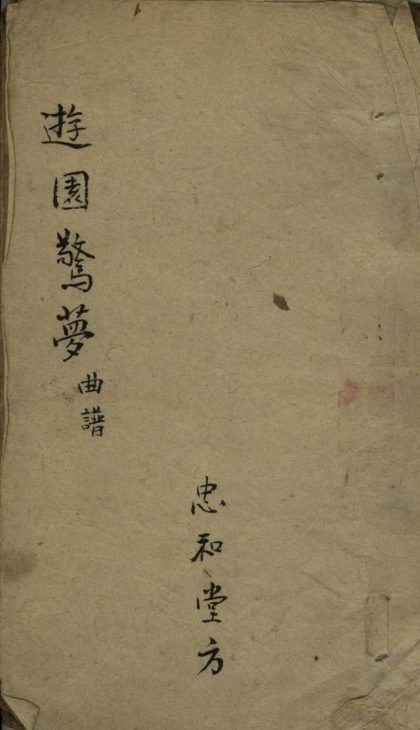 遊園驚夢曲譜
忠和堂方